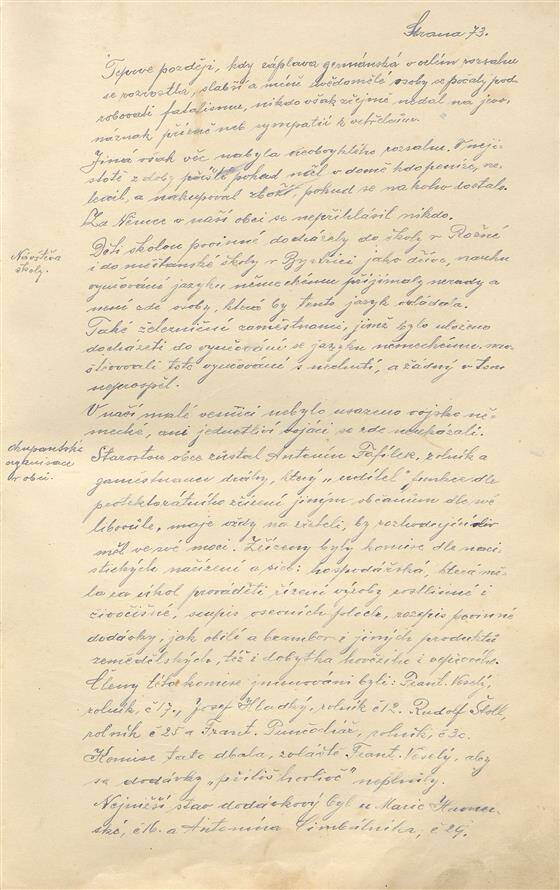 Strana 73.
Teprve později, kdy záplava germánská v celém rozsahu
se rozrostla, slabší a méně uvědomělé osoby se počaly pod-
robovati fatalismu, nikdo však zřejmě nedal na jevo,
náznak přízně neb sympatií k vetřelcům.
Jiná však věc nabyla neobvyklého rozsahu. V neji-
stotě z doby příští pokud měl v domě kdo peníze, ne-
lenil, a nakupoval zboží, pokud se na koho dostalo.
Za Němce v naší obci se nepřihlásil nikdo.
Návštěva
školy.
Děti školou povinné docházely do školy v Rožné
i do měšťanské školy v Bystřici jako dříve, nauku
vyučování jazyku německému přijímaly nerady a
není zde osoby, která by tento jazyk ovládala.
Také železniční zaměstnanci, jimž bylo uloženo
docházeti do vyučování se jazyku německému, na-
vštěvovali toto vyučování s nechutí, a žádný v tom
neprospěl.
V naší malé vesnici nebylo usazeno vojsko ně-
mecké, ani jednotliví vojáci se zde neukázali.
okupantské
organisace
v obci.
Starostou obce zůstal Antonín Fafílek, rolník a
zaměstnanec dráhy, který „udílel" funkce dle
protektorátního zřízení jiným občanům dle své
libovůle, maje vždy na zřeteli, by rozhodující slovo
měl ve své moci. Zřízeny byly komise dle naci-
stických nařízení a sice: hospodářská, která mě-
la za úkol prováděti řízení výroby rostlinné i
živočišné, soupis osevních ploch, rozepis povinné
dodávky, jak obilí a brambor i jiných produktů
zemědělských, též i dobytka hovězího i vepřového.
Členy této komise jmenováni byli: Frant. Veselý,
rolník, č 17., Josef Hladký, rolník č 12. Rudolf Štolc,
rolník č 25 a Frant. Punčochář, rolník, č 30.
Komise tato dbala, zvláště Frant. Veselý, aby
se dodávky „příliš horlivě" neplnily.
Nejnižší stav dodávkový byl u Marie
ské, č 16. a Antonína Cimbálníka, č 29.